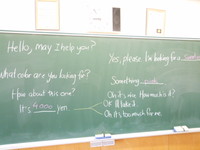 Hello, may I help you?
Yes, please. I'm looking for a
What color are you looking for?
Something
How about this one?
Oh it's nice. How much is it?
It's 4,000 yen.
OK I'll take it.
Oh it's too much for me.